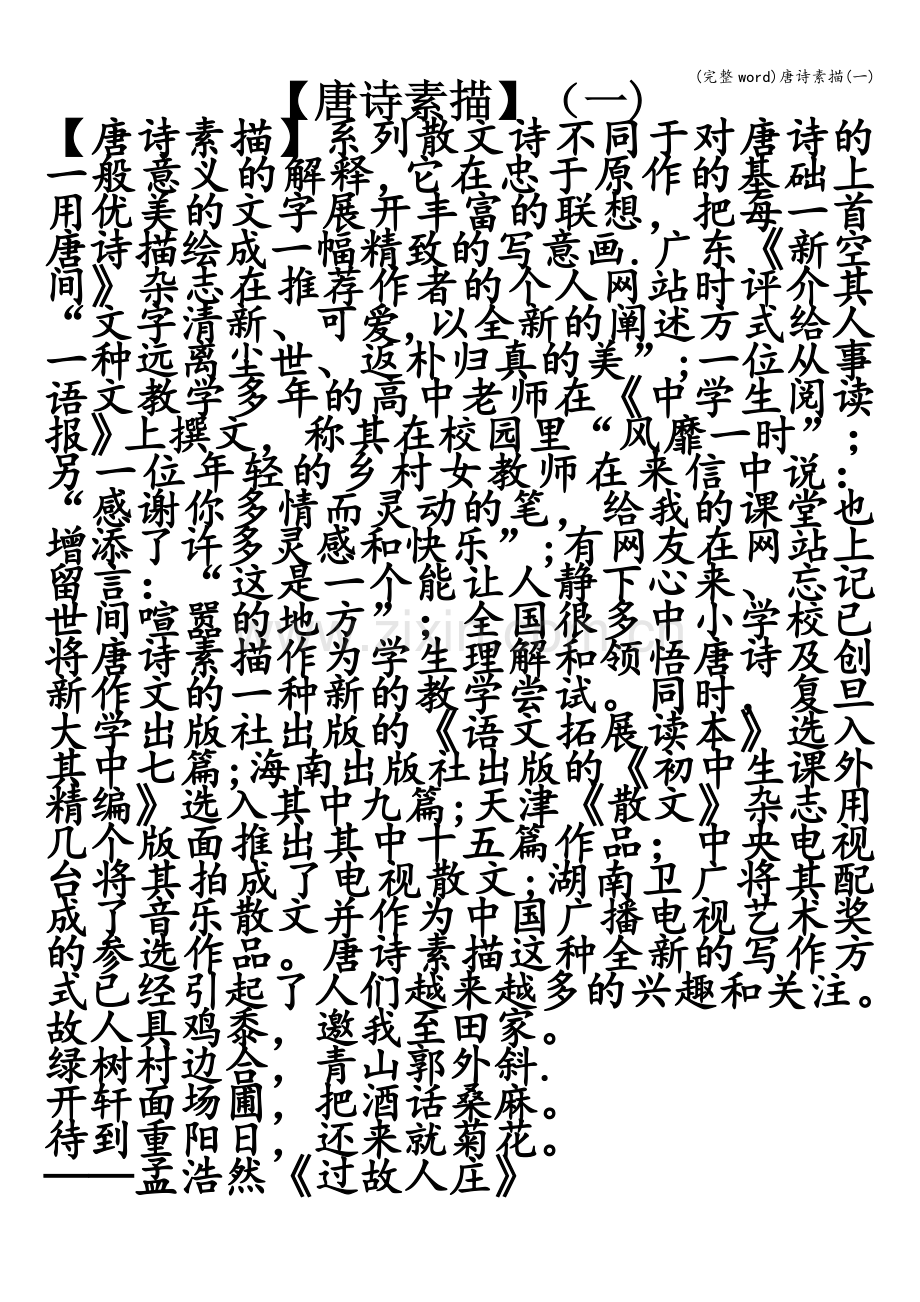 (完整word)唐诗素描(一)
【唐诗素描】（一）
【唐诗素描】系列散文诗不同于对唐诗的
一般意义的解释,它在忠于原作的基础上
用优美的文字展开丰富的联想，把每一首
唐诗描绘成一幅精致的写意画.广东《新空
间》杂志在推荐作者的个人网站时评介其
“文字清新、可爱,以全新的阐述方式给人
一种远离尘世、返朴归真的美”;一位从事
语文教学多年的高中老师在《中学生阅读
报》上撰文，称其在校园里“风靡一时”；
另一位年轻的乡村女教师在来信中说：
“感谢你多情而灵动的笔，给我的课堂也
增添了许多灵感和快乐”;有网友在网站上
留言：“这是一个能让人静下心来、忘记
世间喧嚣的地方”；全国很多中小学校已
将唐诗素描作为学生理解和领悟唐诗及创
新作文的一种新的教学尝试。同时．复旦
大学出版社出版的《语文拓展读本》选入
其中七篇;海南出版社出版的《初中生课外
精编》选入其中九篇;天津《散文》杂志用
几个版面推出其中十五篇作品；中央电视
台将其拍成了电视散文;湖南卫广将其配
成了音乐散文并作为中国广播电视艺术奖
的参选作品。唐诗素描这种全新的写作方
式已经引起了人们越来越多的兴趣和关注。
故人具鸡黍，邀我至田家。
绿树村边合，青山郭外斜.
开轩面场圃，把酒话桑麻。
待到重阳日，还来就菊花。
——孟浩然《过故人庄》
www.zixin.com.cn